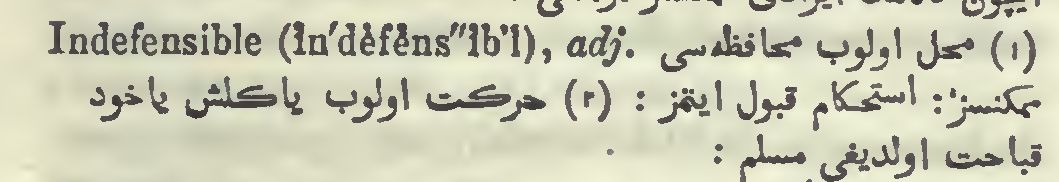 Indefensible (ĭn′dĕfĕns″ĭb'l), adj. (١) محل اولوب محافظه‌سی
ممكنسز: استحكام قبول ایتمز : (٢) حركت اولوب یاكلش یاخود
قباحت اولدیغی مسلم :